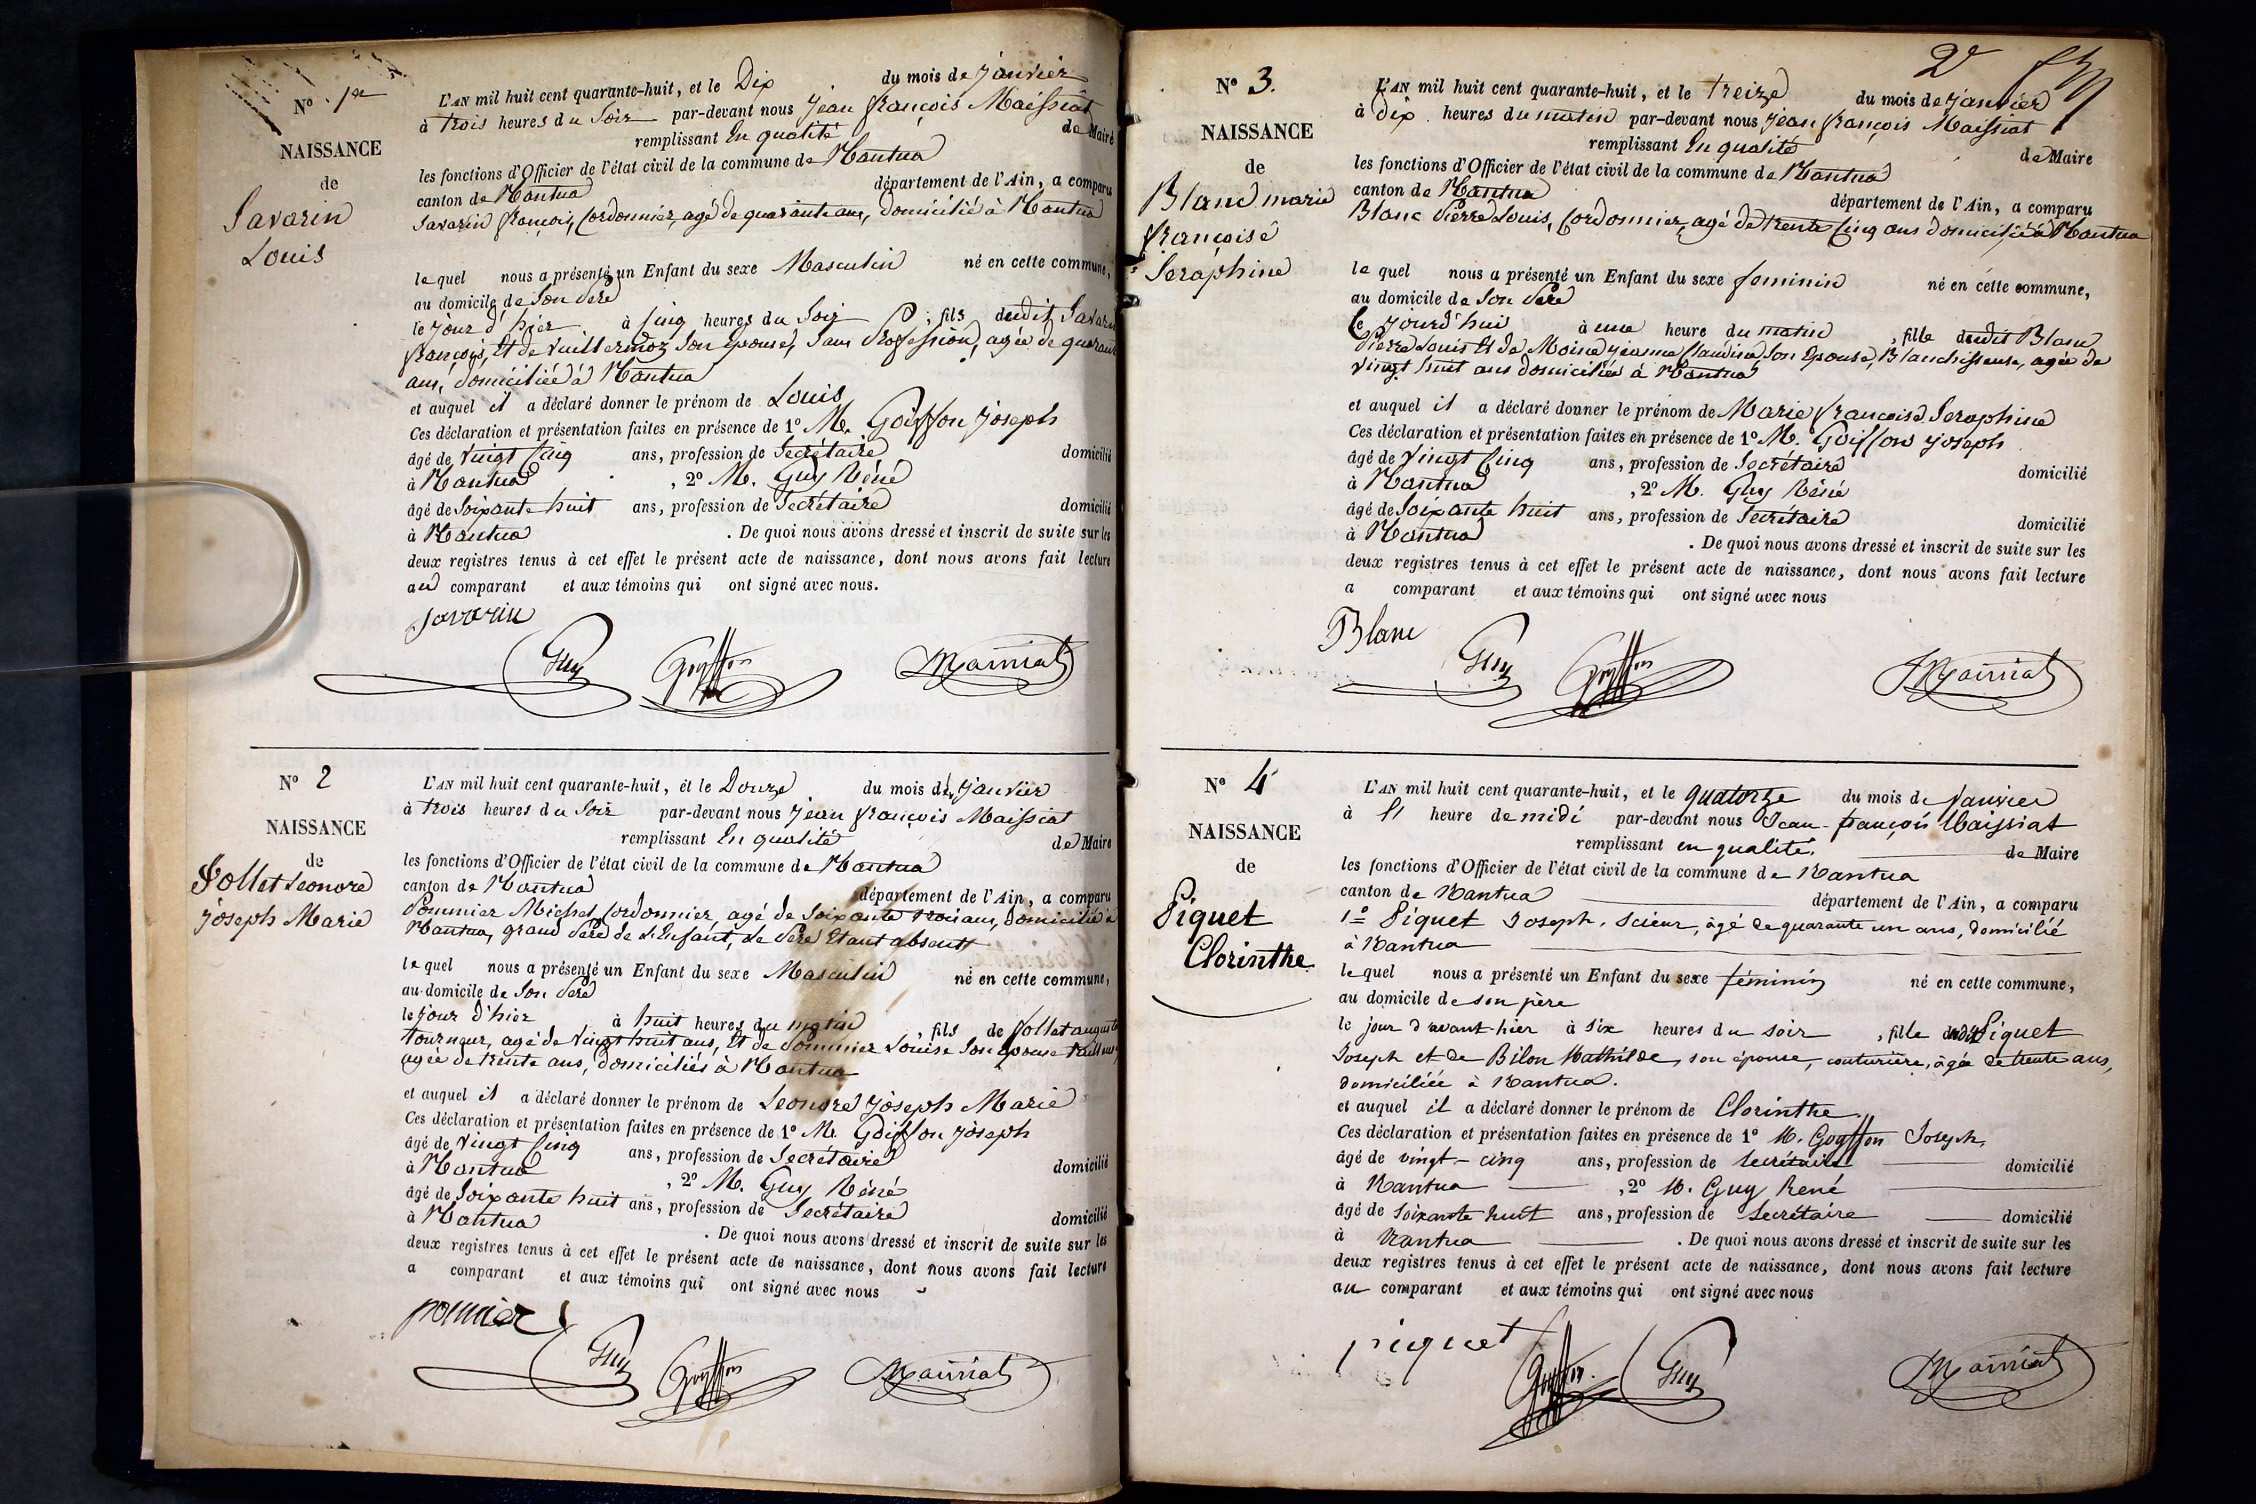 N° 1er
NAISSANCE
de
Savarin
Louis
L'AN mil huit cent quarante-huit, et le Dix du mois de Janvier
à trois heures du Soir par-devant nous Jean françois Maissiat
remplissant En qualité de Maire
les fonctions d'Officier de l'état civil de la commune de Nantua
canton de Nantua département de l'Ain, a comparu
Savarin françois, Cordonnier, agé de quarante ans, domicilié à Nantua
lequel nous a présenté un Enfant du sexe Masculin né en cette commune,
au domicile de Son Père
le jour d'hier à Cinq heures du Soir, fils dudit Savarin
françois, Et de Vuillermoz Son épouse, Sans Profession, agée de quarante
ans, domiciliée à Nantua
et auquel il a déclaré donner le prénom de Louis
Ces déclaration et présentation faites en présence de 1° M. Goiffon Joseph
âgé de Vingt Cinq ans, profession de Secrétaire domicilié
à Nantua, 2° M. Guy Réné
âgé de Soixante huit ans, profession de Secrétaire domicilié
à Nantua. De quoi nous avons dressé et inscrit de suite sur les
deux registres tenus à cet effet le présent acte de naissance, dont nous avons fait lecture
au comparant et aux témoins qui ont signé avec nous.
Savarin
Guy Goyffon Maissiat
N° 2
NAISSANCE
de
Follet Leonore
Joseph Marie
L'AN mil huit cent quarante-huit, et le Douze du mois de Janvier
à trois heures du Soir par-devant nous Jean françois Maissiat
remplissant En qualité de Maire
les fonctions d'Officier de l'état civil de la commune de Nantua
canton de Nantua département de l'Ain, a comparu
Pommier Michel, Cordonnier, agé de Soixante trois ans, domicilié à
Nantua, grand Père de L'Enfant, Le Père Etant absent
lequel nous a présenté un Enfant du sexe Masculin né en cette commune,
au domicile de Son Père
le jour d'hier à huit heures du matin, fils de Follet auguste
tourneur, agé de Vingt huit ans, Et de Pommier Louise Son épouse
agée de trente ans, domiciliés à Nantua
et auquel il a déclaré donner le prénom de Leonore Joseph Marie
Ces déclaration et présentation faites en présence de 1° M. Goiffon Joseph
âgé de Vingt Cinq ans, profession de Secrétaire domicilié
à Nantua, 2° M. Guy Réné
âgé de Soixante huit ans, profession de Secrétaire domicilié
à Nantua. De quoi nous avons dressé et inscrit de suite sur les
deux registres tenus à cet effet le présent acte de naissance, dont nous avons fait lecture
a comparant et aux témoins qui ont signé avec nous
pommier
Guy Goyffon Maissiat
2e
N° 3.
NAISSANCE
de
Blanc marie
françoise
Seraphine
L'AN mil huit cent quarante-huit, et le treize du mois de Janvier
à Dix heures du matin par-devant nous Jean françois Maissiat
remplissant En qualité de Maire
les fonctions d'Officier de l'état civil de la commune de Nantua
canton de Nantua département de l'Ain, a comparu
Blanc Pierre Louis, Cordonnier, agé de trente Cinq ans domicilié à Nantua
lequel nous a présenté un Enfant du sexe feminin né en cette commune,
au domicile de Son Père
Ce Jourd'hui à une heure du matin, fille dudit Blanc
Pierre Louis Et de Moine Jeanne Claudine, Son Epouse, Blanchisseuse, agée de
Vingt huit ans domiciliée à Nantua
et auquel il a déclaré donner le prénom de Marie françoise Seraphine
Ces déclaration et présentation faites en présence de 1° M. Goiffon Joseph
âgé de Vingt Cinq ans, profession de Secrétaire domicilié
à Nantua, 2° M. Guy Réné
âgé de Soixante huit ans, profession de Secrétaire domicilié
à Nantua. De quoi nous avons dressé et inscrit de suite sur les
deux registres tenus à cet effet le présent acte de naissance, dont nous avons fait lecture
a comparant et aux témoins qui ont signé avec nous
Blanc
Guy Goyffon Maissiat
N° 4
NAISSANCE
de
Piquet
Clorinthe
L'AN mil huit cent quarante-huit, et le quatorze du mois de Janvier
à 11 heure de midi par-devant nous Jean-françois Maissiat
remplissant en qualité. de Maire
les fonctions d'Officier de l'état civil de la commune de Nantua
canton de Nantua département de l'Ain, a comparu
1° Piquet Joseph, Scieur, âgé de quarante un ans, domicilié
à Nantua
lequel nous a présenté un Enfant du sexe féminin né en cette commune,
au domicile de son père
le jour d'avant-hier à six heures du soir, fille dudit Piquet
Joseph et de Bilon Mathilde, son épouse, couturière, âgée de trente ans,
domiciliée à Nantua.
et auquel il a déclaré donner le prénom de Clorinthe
Ces déclaration et présentation faites en présence de 1° M. Goyffon Joseph,
âgé de vingt-cinq ans, profession de Secrétaire domicilié
à Nantua, 2° M. Guy René
âgé de soixante huit ans, profession de Secrétaire domicilié
à Nantua. De quoi nous avons dressé et inscrit de suite sur les
deux registres tenus à cet effet le présent acte de naissance, dont nous avons fait lecture
au comparant et aux témoins qui ont signé avec nous
piquet
Goyffon Guy Maissiat